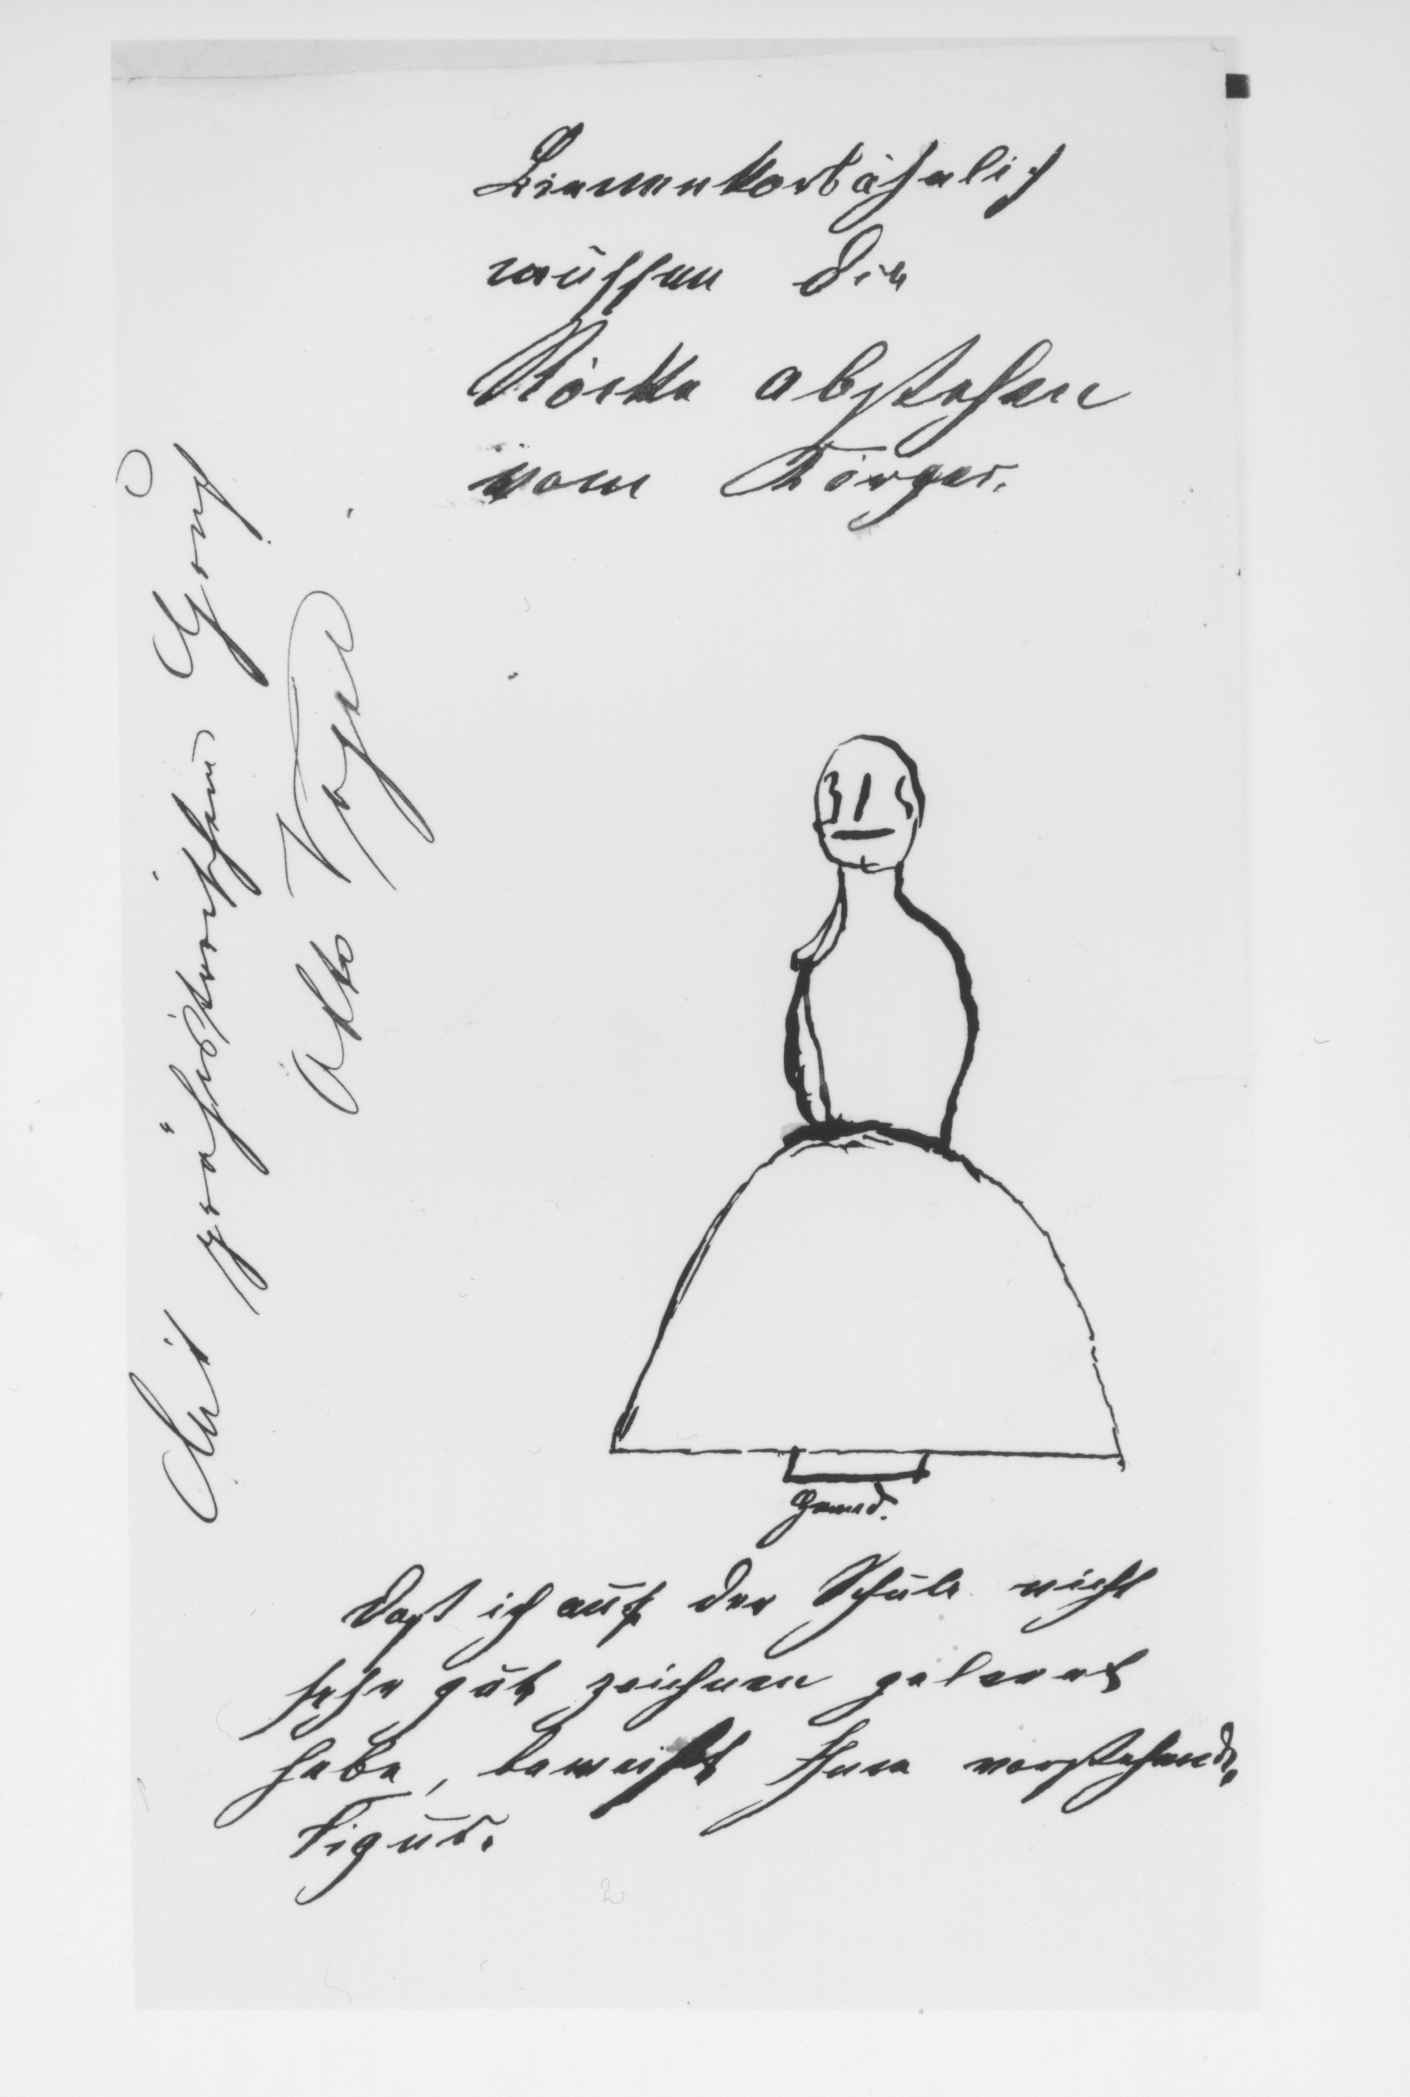 Bienenkorbähnlich
müssen die
Röcke abstehen
vom Körper.
Mit prähistorischem Gruß
Otto Vogel
Hemd.
Daß ich auf der Schule nicht
sehr gut zeichnen gelernt
habe, beweißt Ihnen vorstehende
Figur.